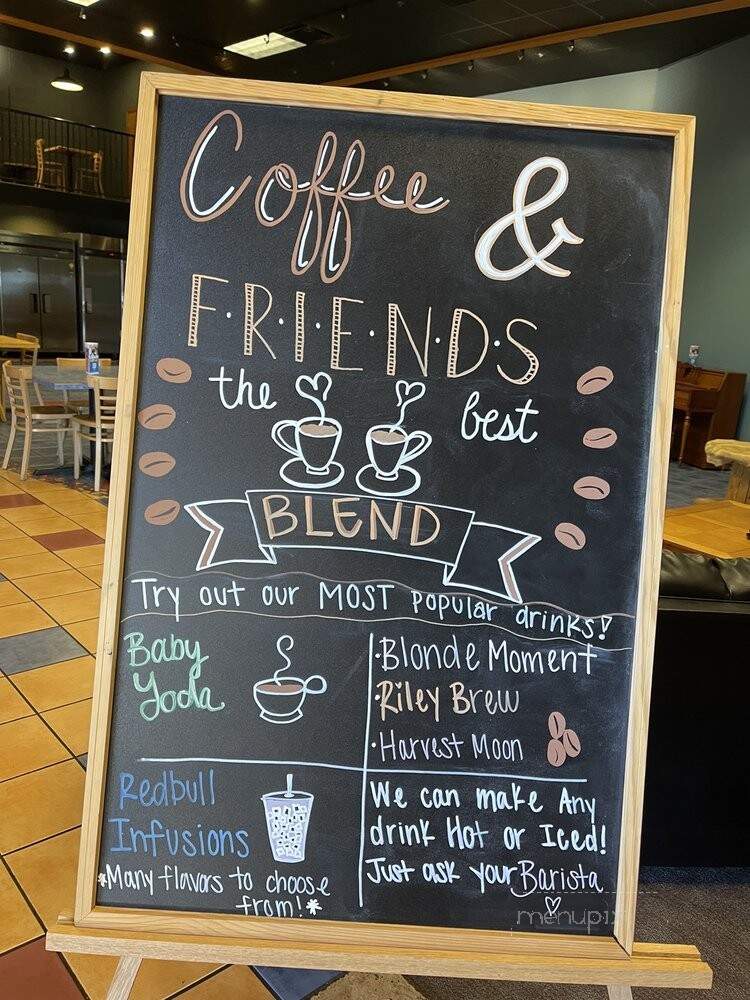 Coffee &
F.R.I.E.N.D.S
the best
BLEND
Try out our MOST popular drinks!
Baby
Yoda
• Blonde Moment
• Riley Brew
• Harvest Moon
Redbull
Infusions
*Many flavors to choose
from!*
We can make Any
drink Hot or Iced!
Just ask your Barista
menupix